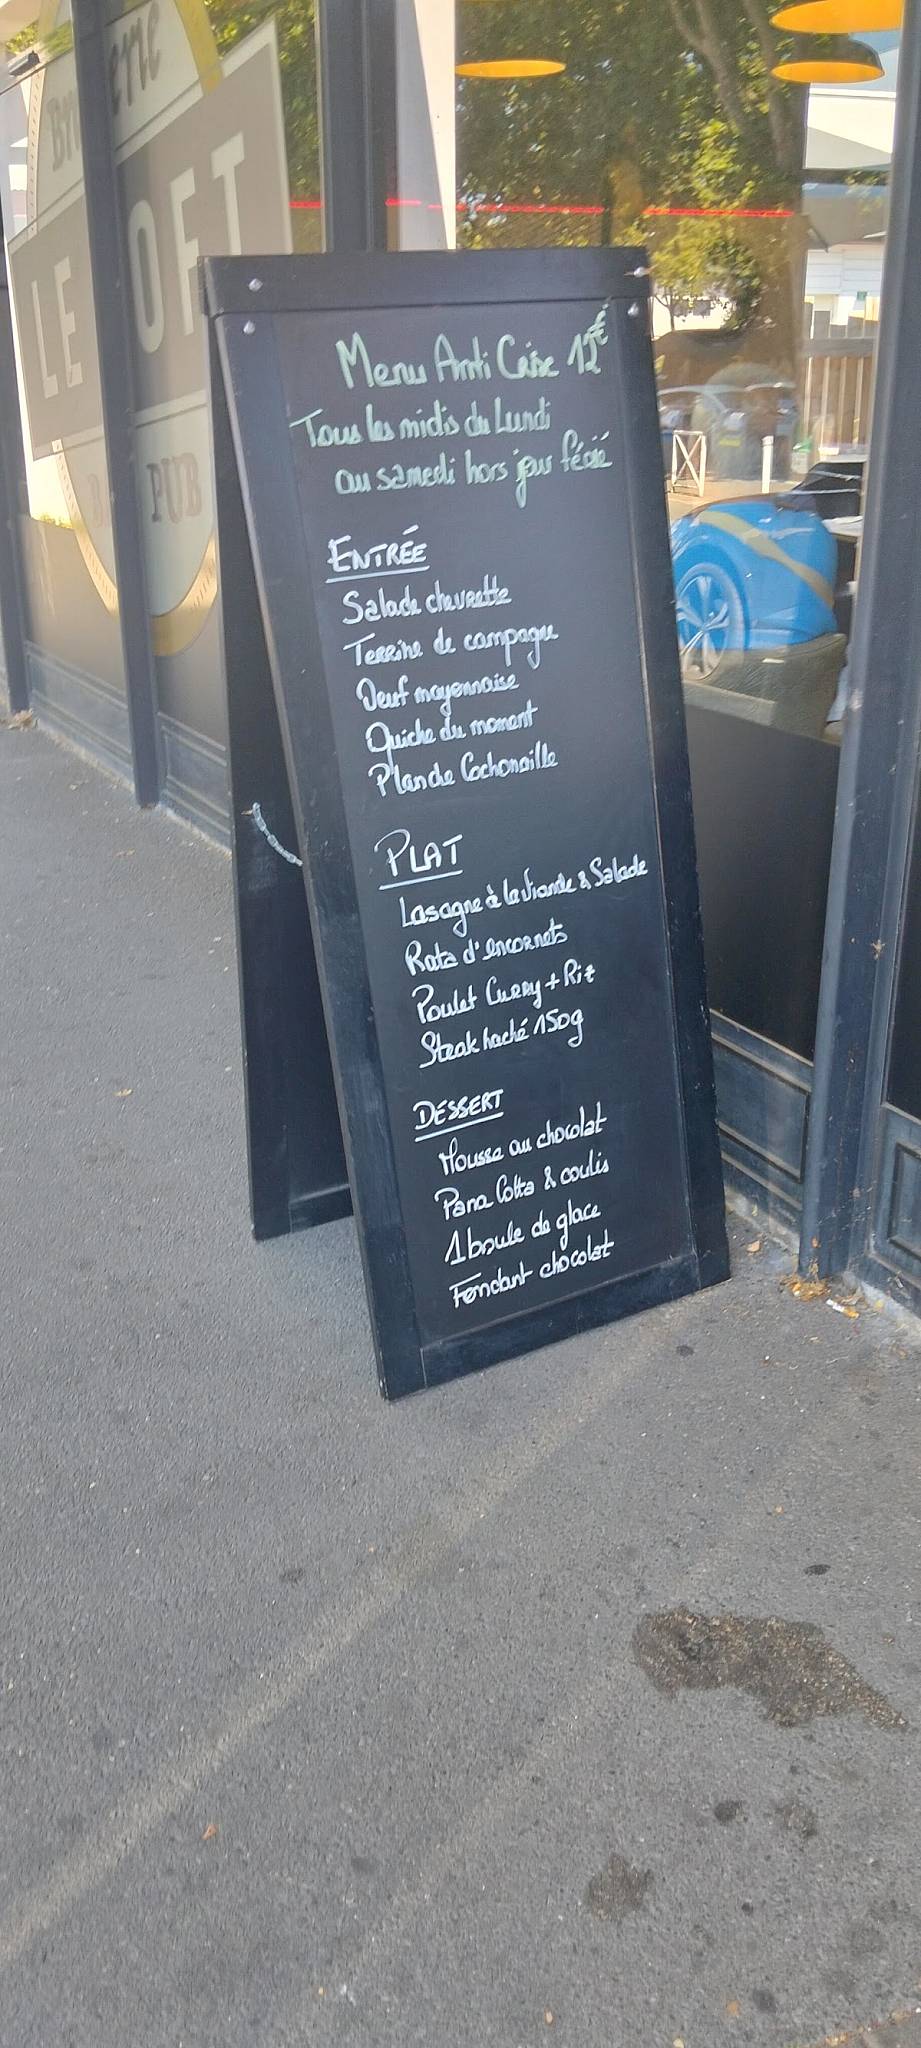 LE LOFT
PUB
Menu Anti Crise 12€
Tous les midis du Lundi
au samedi hors jour férié
ENTRÉE
Salade chevrette
Terrine de campagne
Oeuf mayonnaise
Quiche du moment
Planche Cochonaille
PLAT
Lasagne à la viande & Salade
Rata d'encornets
Poulet Curry + Riz
Steak haché 150g
DÉSSERT
Mousse au chocolat
Pana Cotta & coulis
1 boule de glace
Fondant chocolat